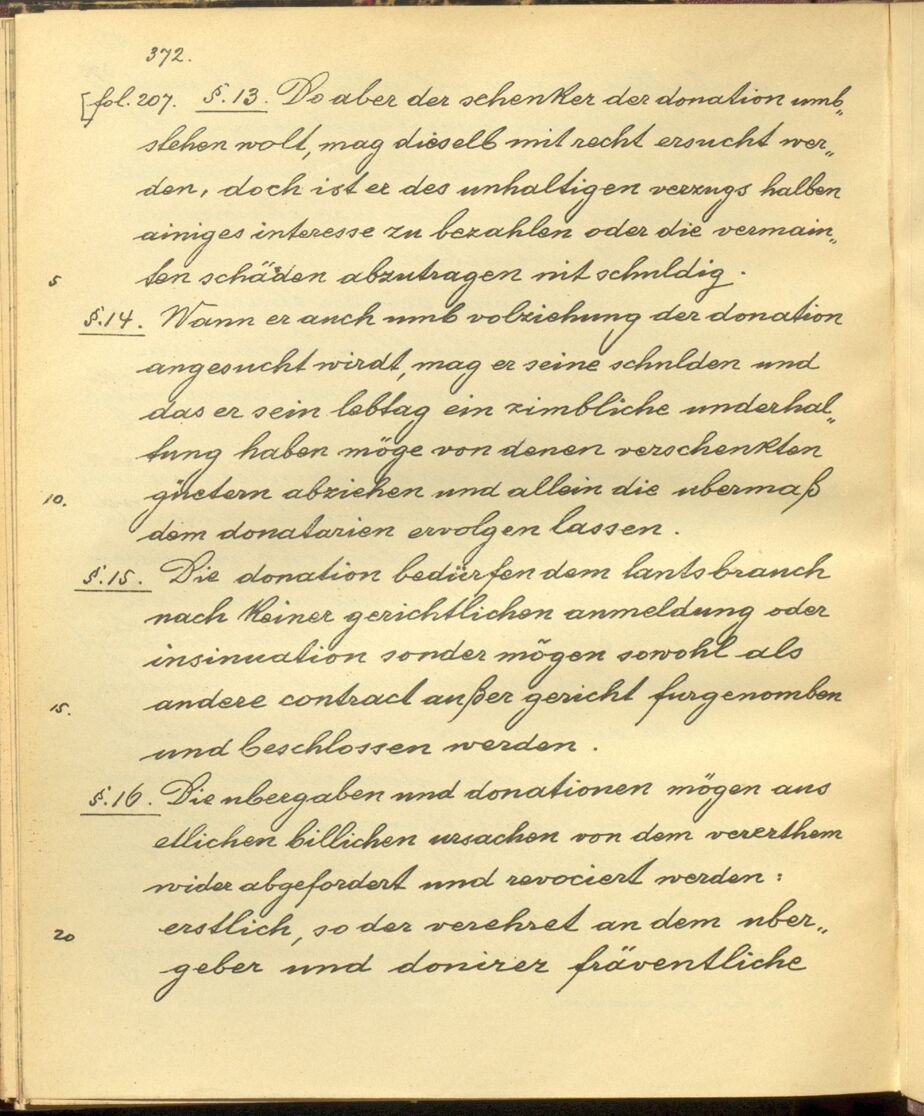 372.
[fol. 207. §. 13. Do aber der schenker der donation umb„
stehen wolt, mag dieselb mit recht ersucht wer„
den, doch ist er des unhaltigen verzugs halben
ainiges interesse zu bezahlen oder die vermain„
5 ten schäden abzutragen nit schuldig.
§. 14. Wann er auch umb volziehung der donation
angesucht wirdt, mag er seine schulden und
das er sein lebtag ein zimbliche underhal„
tung haben möge von denen verschenkten
10. güetern abziehen und allein die ubermaß
dem donatarien ervolgen lassen.
§. 15. Die donation bedürfen dem lantsbrauch
nach keiner gerichtlichen anmeldung oder
insinuation sonder mögen sowohl als
15. andere contract außer gericht furgenomben
und beschlossen werden.
§. 16. Die ubergaben und donationen mögen aus
etlichen billichen ursachen von dem vererthem
wider abgefordert und revociert werden:
20 erstlich, so der verehret an dem uber„
geber und donirer fräventliche